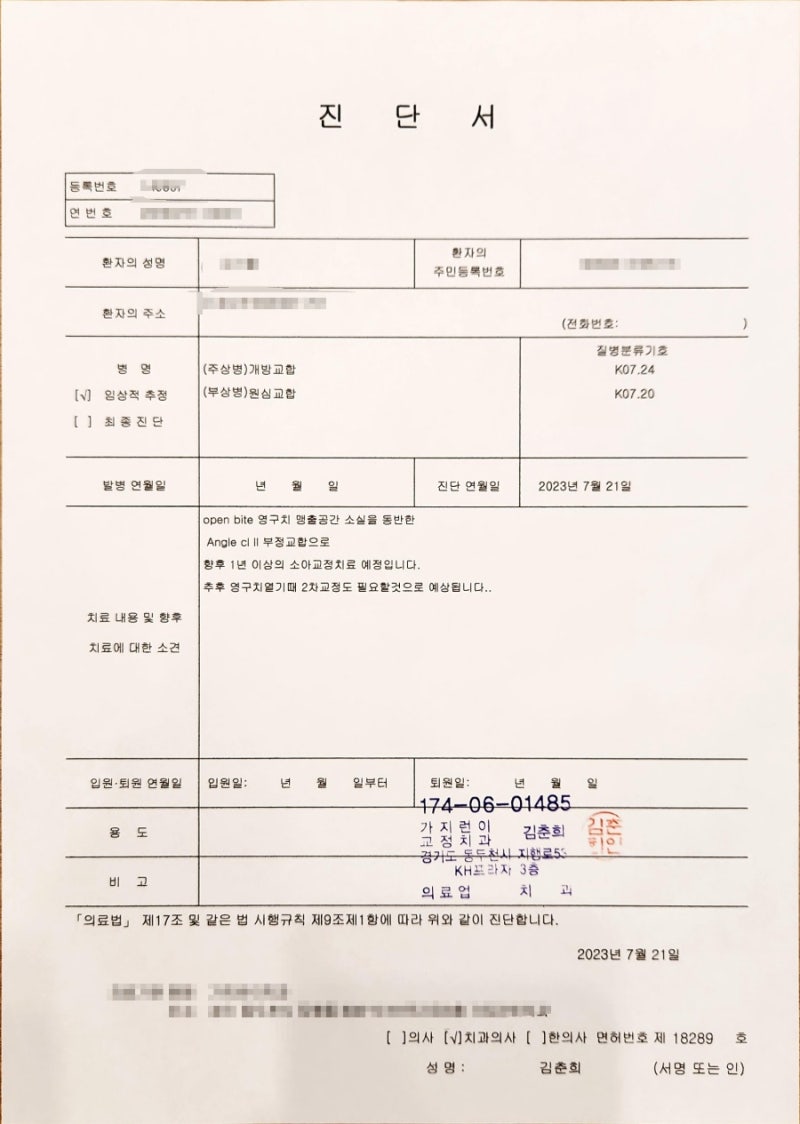 진 단 서
등록번호
연 번 호
환자의 성명
환자의
주민등록번호
환자의 주소
(전화번호: )
병 명
(주상병)개방교합
질병분류기호
K07.24
[√] 임상적 추정
(부상병)원심교합
K07.20
[ ] 최 종 진 단
발병 연월일
년 월 일
진단 연월일
2023년 7월 21일
치료 내용 및 향후
치료에 대한 소견
open bite 영구치 맹출공간 소실을 동반한
Angle cl II 부정교합으로
향후 1년 이상의 소아교정치료 예정입니다.
추후 영구치열기때 2차교정도 필요할것으로 예상됩니다..
입원·퇴원 연월일
입원일: 년 월 일부터
퇴원일: 년 월 일
용 도
비 고
174-06-01485
가지런이
고정치과
김춘희
경기도 동두천시 지행로53
KH프라자 3층
의료업 치 과
김춘
희인
「의료법」 제17조 및 같은 법 시행규칙 제9조제1항에 따라 위와 같이 진단합니다.
2023년 7월 21일
[ ]의사 [√]치과의사 [ ]한의사 면허번호 제 18289 호
성 명 : 김춘희 (서명 또는 인)